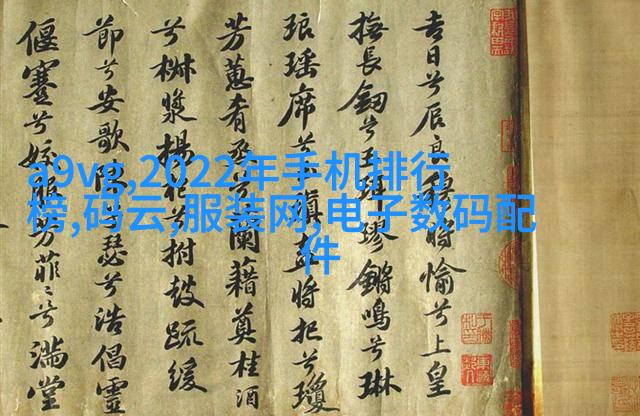 吉日兮辰良穆將愉兮上皇
撫長劒兮玉珥璆鏘鳴兮琳
琅瑤席兮瑱盍將把兮瓊
芳蕙肴烝兮蘭藉奠桂酒
兮椒漿揚枹兮拊鼓疏緩
節兮安歌陳瑟兮浩倡靈
偃蹇兮姣服芳菲〻兮滿堂
a9vg,2022年手机排行
榜,码云,服装网,电子数码配
件